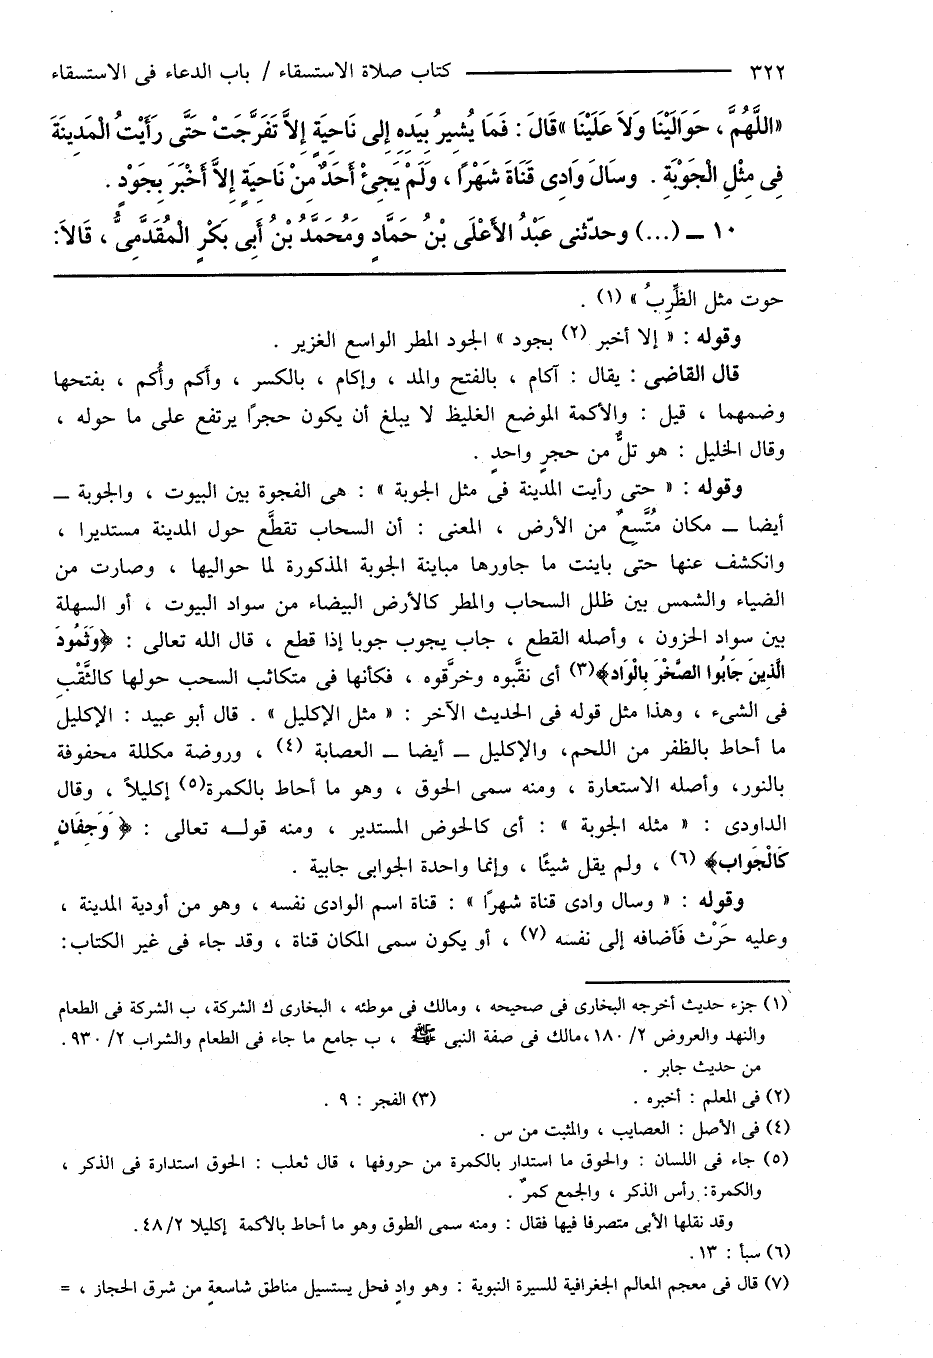 ٣٢٢ ــــــــــــــــــــ كتاب صلاة الاستسقاء / باب الدعاء فى الاستسقاء
«اللَّهُمَّ ، حَوَالَيْنَا وَلاَ عَلَيْنَا »قَالَ : فَمَا يُشِيرُ بِيَدِهِ إِلى نَاحِيَةٍ إِلاَّ تَفَرَّجَتْ حَتَّى رَأَيْتُ الْمَدِينَةَ
فِى مِثْلِ الْجَوْبَةِ . وسَالَ وَادِى قَنَاةَ شَهْرًا ، وَلَمْ يَجِئْ أَحَدٌ مِنْ نَاحِيَةٍ إِلاَّ أَخْبَرَ بِجَوْدٍ .
١٠ ــ (...) وحدّثنى عَبْدُ الأَعْلَى بْنُ حَمَّادٍ وَمُحَمَّدُ بْنُ أَبِى بَكْرٍ المُقَدَّمِىُّ ، قَالاَ:
حوت مثل الظَّرِبُ » (١) .
وقوله : « إلا أخبر (٢) بجود » الجود المطر الواسع الغزير .
قال القاضى : يقال : آكام ، بالفتح والمد ، وإكام ، بالكسر ، وأكم وأُكم ، بفتحها
وضمهما ، قيل : والأكمة الموضع الغليظ لا يبلغ أن يكون حجرًا يرتفع على ما حوله ،
وقال الخليل : هو تلٌّ من حجرٍ واحدٍ .
وقوله : « حتى رأيت المدينة فى مثل الجوبة » : هى الفجوة بين البيوت ، والجوبة ــ
أيضا ــ مكان مُتَّسِعٌ من الأرض ، المعنى : أن السحاب تقطَّع حول المدينة مستديرا ،
وانكشف عنها حتى باينت ما جاورها مباينة الجوبة المذكورة لما حواليها ، وصارت من
الضياء والشمس بين ظلل السحاب والمطر كالأرض البيضاء من سواد البيوت ، أو السهلة
بين سواد الحزون ، وأصله القطع ، جاب يجوب جوبا إذا قطع ، قال الله تعالى : ﴿وَثَمُودَ
الَّذِينَ جَابُوا الصَّخْرَ بِالْوَادِ﴾(٣) أى نقَّبوه وخرَّقوه ، فكأنها فى متكاثب السحب حولها كالثَّقْبِ
فى الشىء ، وهذا مثل قوله فى الحديث الآخر : « مثل الإكليل » . قال أبو عبيد : الإكليل
ما أحاط بالظفر من اللحم، والإكليل ــ أيضا ــ العصابة (٤) ، وروضة مكللة محفوفة
بالنور، وأصله الاستعارة ، ومنه سمى الحوق ، وهو ما أحاط بالكمرة(٥) إكليلاً ، وقال
الداودى : « مثله الجوبة » : أى كالحوض المستدير ، ومنه قولـه تعالى : ﴿ وَجِفَانٍ
كَالْجَوَابِ﴾ (٦) ، ولم يقل شيئًا ، وإنما واحدة الجوابى جابية .
وقوله : « وسال وادى قناة شهرًا » : قناة اسم الوادى نفسه ، وهو من أودية المدينة ،
وعليه حَرْث فَأضافه إلى نفسه (٧) ، أو يكون سمى المكان قناة ، وقد جاء فى غير الكتاب:
(١) جزء حديث أخرجه البخارى فى صحيحه ، ومالك فى موطئه ، البخارى ك الشركة، ب الشركة فى الطعام
والنهد والعروض ٢/ ١٨٠،مالك فى صفة النبى ﷺ ، ب جامع ما جاء فى الطعام والشراب ٢/ ٩٣٠ .
من حديث جابر .
(٢) فى المعلم : أخبره . (٣) الفجر : ٩ .
(٤) فى الأصل : العصايب ، والمثبت من س .
(٥) جاء فى اللسان : والحوق ما استدار بالكمرة من حروفها ، قال ثعلب : الحوق استدارة فى الذكر ،
والكمرة: رأس الذكر ، والجمع كمرٌ .
وقد نقلها الأبى متصرفا فيها فقال : ومنه سمى الطوق وهو ما أحاط بالأكمة إكليلا ٤٨/٢ .
(٦) سبأ : ١٣ .
(٧) قال فى معجم المعالم الجغرافية للسيرة النبوية : وهو وادٍ فحل يستسيل مناطق شاسعةٍ من شرق الحجاز ، =